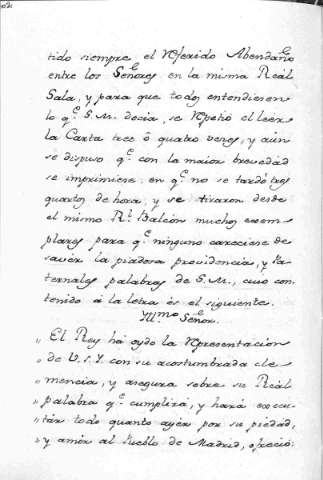 tido siempre el Rferido Abendaño
entre los Señores en la misma Reál
Sala, y para que todos entendiesen
lo q.e S. M. decia, se Rpetió el leer
la Carta tres ó quatro veces, y aún
se dispuso q.e con la maior brevedad
se imprimiese, en q.e no se tardó tres
quartos de hora, y se tiraron desde
el mismo R.l Balcón muchos exem-
plares para q.e ninguno careciese de
savér la piadosa providencia, y Pa-
ternales palabras de S. M., cuio con-
tenido á la letra és el siguiente.
Yll.mo Señor.
„ El Rey há oydo la Rpresentacion
„ de V.S.Y. con su acostumbrada cle-
„ mencia, y asegura sobre su Reál
„ palabra q.e cumplirá, y hará execu-
„ tár todo quanto ayér por su piedad,
„ y amór al Pueblo de Madrid, ofreció: